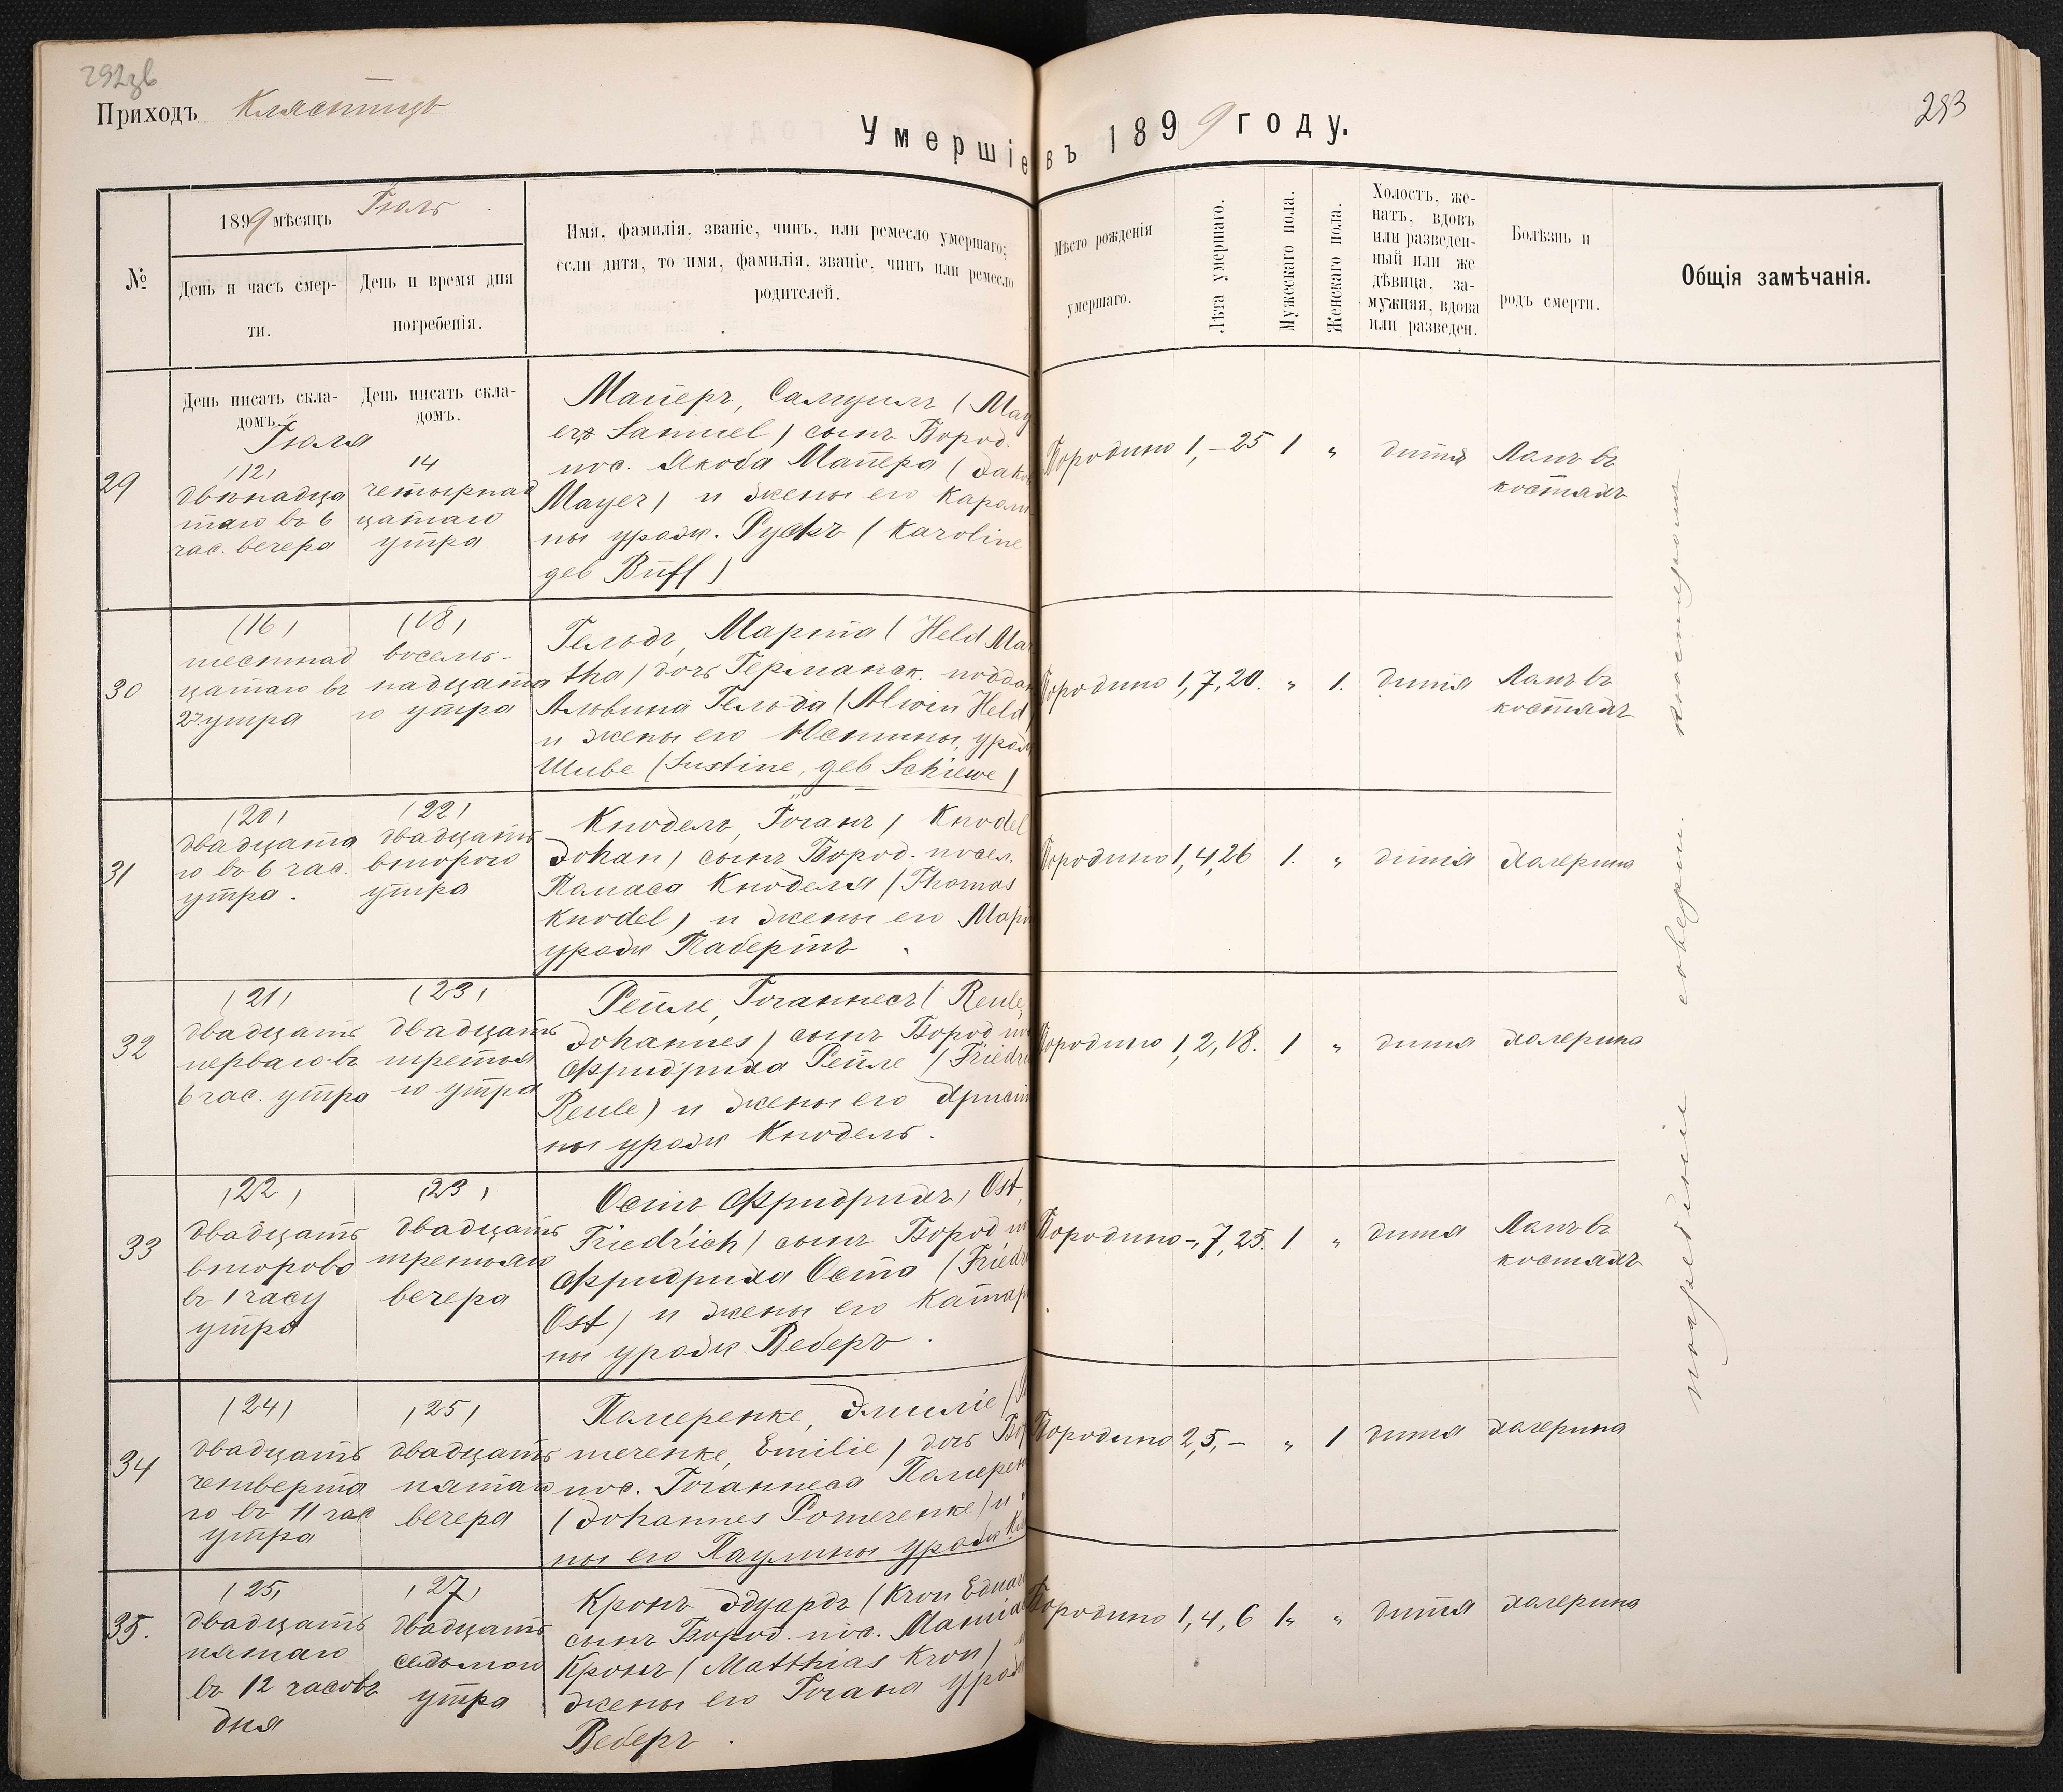 292зв
Приходъ Клястицъ
293
Умершіе въ 1899 году.
№
1899 мѣсяцъ Іюль
День и часъ смер-
ти.
День и время дня
погребенія.
Имя, фамилія, званіе, чинъ, или ремесло умершаго;
если дитя, то имя, фамилія, званіе, чинъ или ремесло
родителей.
Мѣсто рожденія
умершаго.
Лѣта умершаго.
Мужескаго пола.
Женскаго пола.
Холостъ, же-
натъ, вдовъ
или разведен-
ный или же
дѣвица, за-
мужняя, вдова
или разведен.
Болѣзнь и
родъ смерти.
Общія замѣчанія.
День писать скла-
домъ.
День писать скла-
домъ.
Іюля
29
(12)
двѣнадца
таго въ 6
час. вечера
14
четырнад
цатаго
утра.
Майеръ, Самуилъ (May
er, Samuel) сынъ Бород.
пос. Якоба Майера (Jako
Mayer) и жены его Кароли
ны урожд. Руфъ (Karoline
geb Rüff)
Бородино 1, – 25 1 „ дитя Ломъ въ
костяхъ
30
(16)
шестнад
цатаго въ
2 ч утра
(18)
восемь-
надцата
го утра
Гельдъ, Марта (Held Mar
tha) дочь Германск. поддан
Альвина Гельда (Alwin Held)
и жены его Юстины, урожд
Шиве (Justine, geb Schiewe)
Бородино 1, 7, 20. „ 1. дитя Ломъ въ
костяхъ
31
(20)
двадцата
го въ 6 час.
утра.
(22)
двадцать
второго
утра
Кнодель, Іоганъ, Knodel
Johan) сынъ Бород. посел.
Томаса Кноделя (Thomas
Knodel) и жены его Мари
урожд Табертъ
Бородино 1, 4, 26 1. „ дитя Холерина
32
(21)
двадцать
перваго въ
6 час. утра
(23)
двадцать
третья
го утра
Рейле, Іоганнесъ (Reule,
Johannes) сынъ Бород по
Фридриха Рейле (Friedri
Reule) и жены его Христи
ны урожд Кнодель.
Бородино 1, 2, 18. 1 „ дитя холерина
33
(22)
двадцать
второво
въ 1 часу
утра
(23)
двадцать
третьяго
вечера
Остъ Фридрихъ, Ost,
Friedrich) сынъ Бород п
Фридриха Оста (Friedr
Ost) и жены его Катар
ны урожд. Веберъ.
Бородино –, 7, 25. 1 „ дитя Ломъ въ
костяхъ
34
(24)
двадцать
четверта
го въ 11 час
утра
(25)
двадцать
пятаго
вечера
Помренке, Эмиліе
merenke, Emilie) дочь Бо
пос. Іоганнеса Помрен
(Johannes Pomerenke) и
ны его Паулины урожд
Бородино 2, 5, – „ 1 дитя холерина
35.
(25)
двадцать
пятаго
въ 12 часовъ
дня
(27)
двадцать
седьмого
утра
Кронъ Эдуардъ (Kron Eduar
сынъ Бород. пос. Матіа
Кронъ (Matthias Kron)
жены его Іогана урожд
Веберъ.
Бородино 1, 4, 6 1„ „ дитя холерина
погребеніе соверш. кистеромъ.